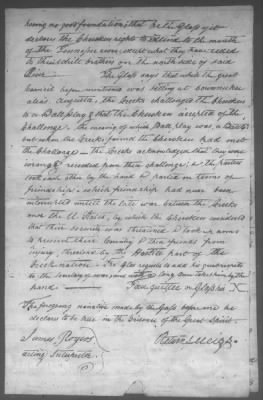 having no good foundations that he the Glass yet
declares the Cherokee rights to extend to the mouth
of the Tennessee river except what they have ceded
to their white brothers on the north side of said
River The Glass says that while the great
Council before mentioned was setting at
alias Augusta, the Creeks challenged the Cherokees
to a Ball play & that the Cherokees accepted of the
Challenge. the meaning of which Ball play, was a
but when the Creeks found the Cherokees had met
the Challenge The Creeks acknowledged that they were
wrong & receeded from their challenge, & the parties
took each other by the hand & parted on terms of
friendship & which friendship had never been
interrupted untill the late war between the Creeks
and the U. States, by which the Cherokees considered
that their security was threatened & took up arms
to prevent their Country & their friends from
injury, threatened by the Hostile part of the
Creek nation. The Glass requests to add he
to the of was with a long Chain taken him by the
hand or Glass his X
The foregoing narrative made by the Glass before me he
declares to be true in the presence of the Great Spirit.
James Rogers Return J. Meigs
acting Interpreter